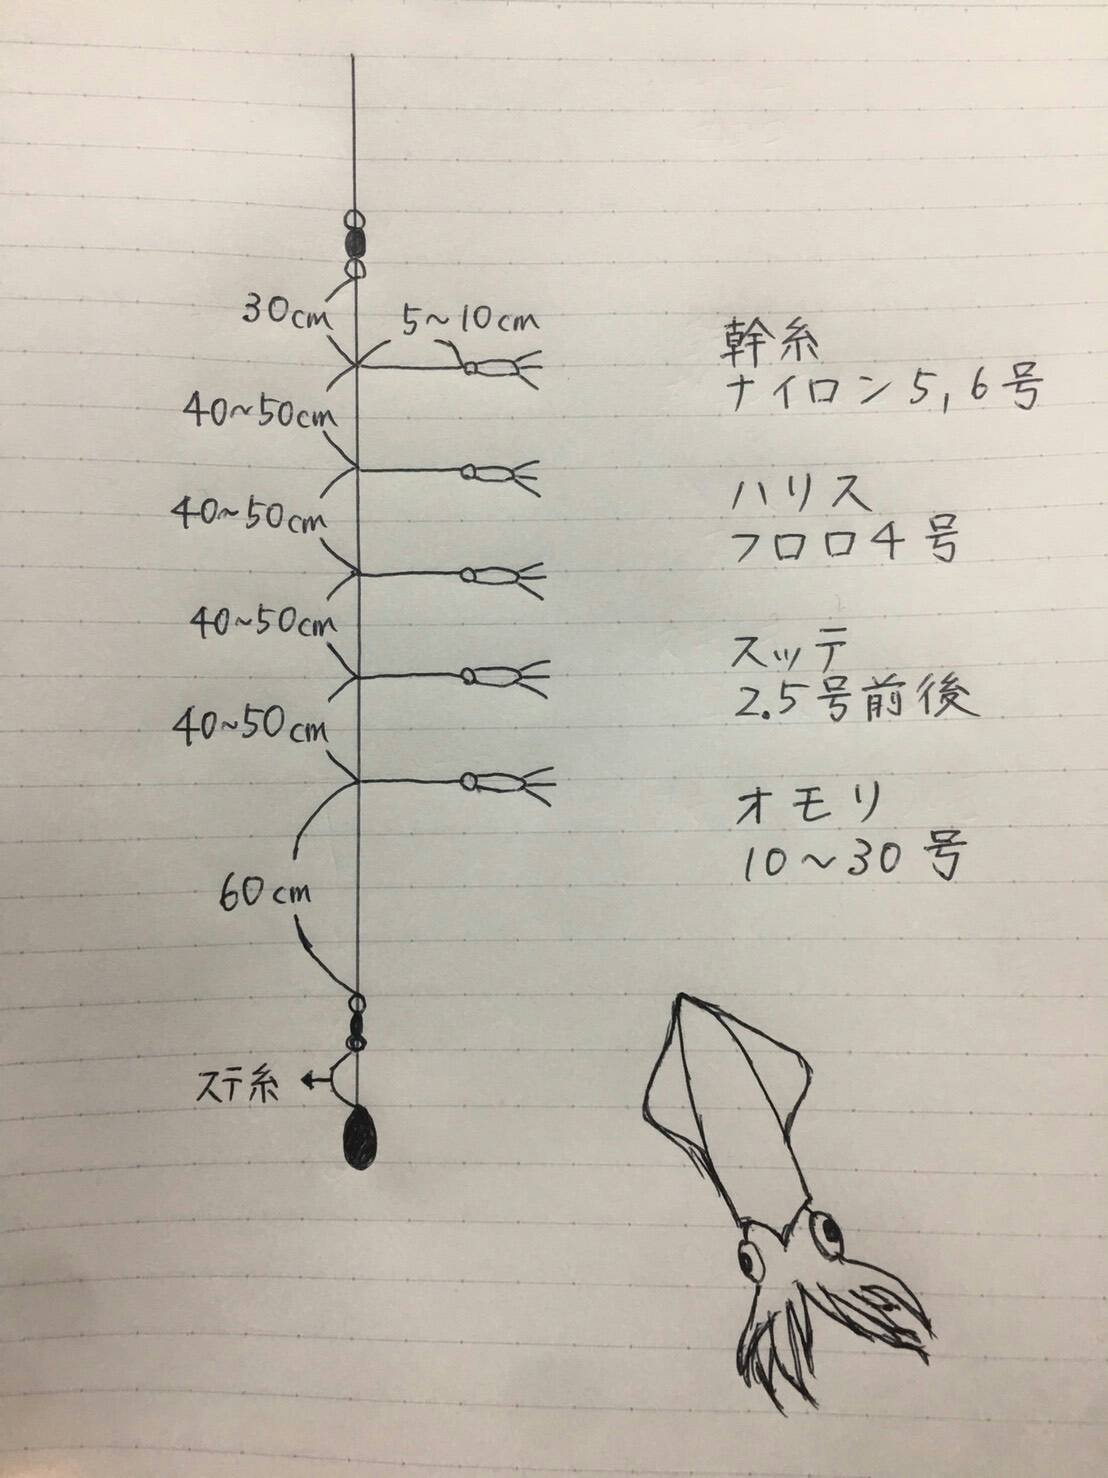 30cm
5~10cm
40~50cm
40~50cm
40~50cm
40~50cm
60cm
ステ糸
幹糸
ナイロン5,6号
ハリス
フロロ4号
スッテ
2.5号前後
オモリ
10~30号